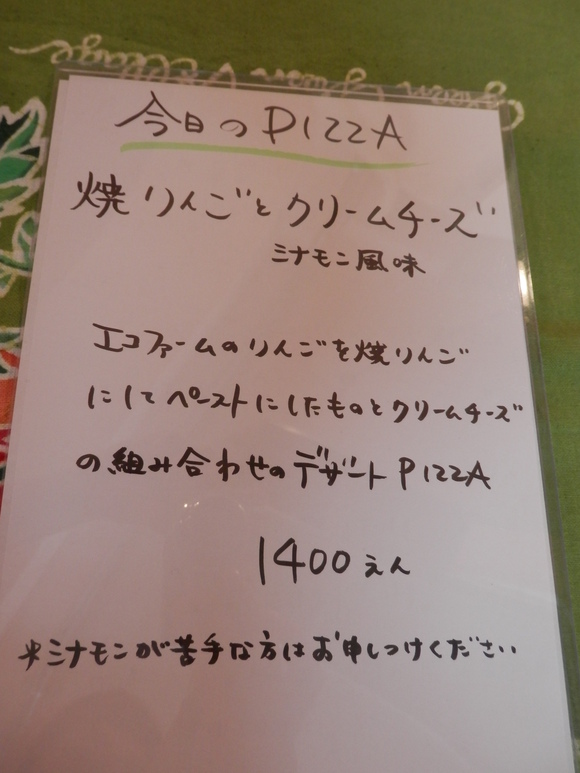 今日のPIZZA
焼りんごとクリームチーズ
ミナモン風味
エコファームのりんごを焼りんご
にしてペーストにしたものとクリームチーズ
の組み合わせのデザートPIZZA
1400えん
*ミナモンが苦手な方はお申しつけください